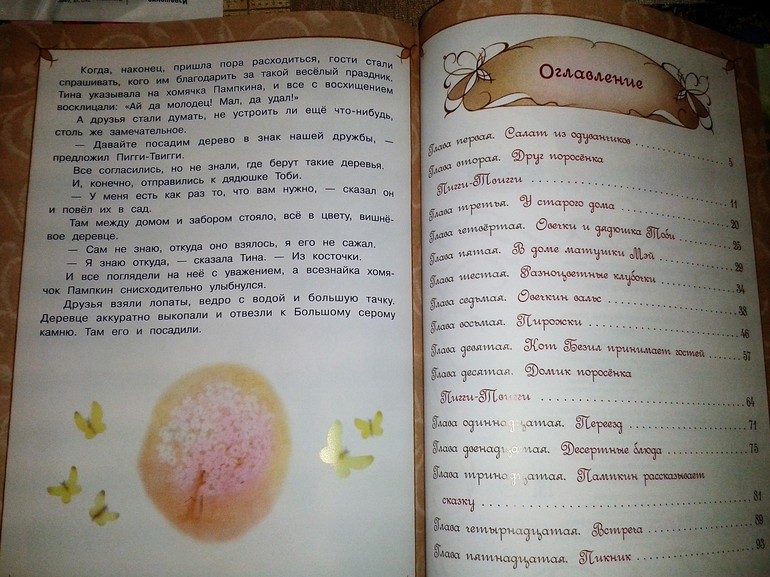 Когда, наконец, пришла пора расходиться, гости стали
спрашивать, кого им благодарить за такой весёлый праздник.
Тина указывала на хомячка Пампкина, и все с восхищением
восклицали: «Ай да молодец! Мал, да удал!»
А друзья стали думать, не устроить ли ещё что-нибудь,
столь же замечательное.
— Давайте посадим дерево в знак нашей дружбы, —
предложил Пигги-Твигги.
Все согласились, но не знали, где берут такие деревья.
И, конечно, отправились к дядюшке Тоби.
— У меня есть как раз то, что вам нужно, — сказал он
и повёл их в сад.
Там между домом и забором стояло, всё в цвету, вишнё-
вое деревце.
— Сам не знаю, откуда оно взялось, я его не сажал.
— Я знаю откуда, — сказала Тина. — Из косточки.
И все поглядели на неё с уважением, а всезнайка хомя-
чок Пампкин снисходительно улыбнулся.
Друзья взяли лопаты, ведро с водой и большую тачку.
Деревце аккуратно выкопали и отвезли к Большому серому
камню. Там его и посадили.
Оглавление
Глава первая. Салат из одуванчиков ..... 5
Глава вторая. Друг поросёнка
Пигги-Твигги ..... 11
Глава третья. У старого дома ..... 20
Глава четвёртая. Овечки и дядюшка Тоби ..... 25
Глава пятая. В доме матушки Мэй ..... 29
Глава шестая. Разноцветные клубочки ..... 34
Глава седьмая. Овечкин вальс ..... 38
Глава восьмая. Пирожки ..... 46
Глава девятая. Кот Безил принимает гостей ..... 57
Глава десятая. Домик поросёнка
Пигги-Твигги ..... 64
Глава одиннадцатая. Переезд ..... 71
Глава двенадцатая. Десертные блюда ..... 75
Глава тринадцатая. Пампкин рассказывает
сказку ..... 81
Глава четырнадцатая. Встреча ..... 89
Глава пятнадцатая. Пикник ..... 93